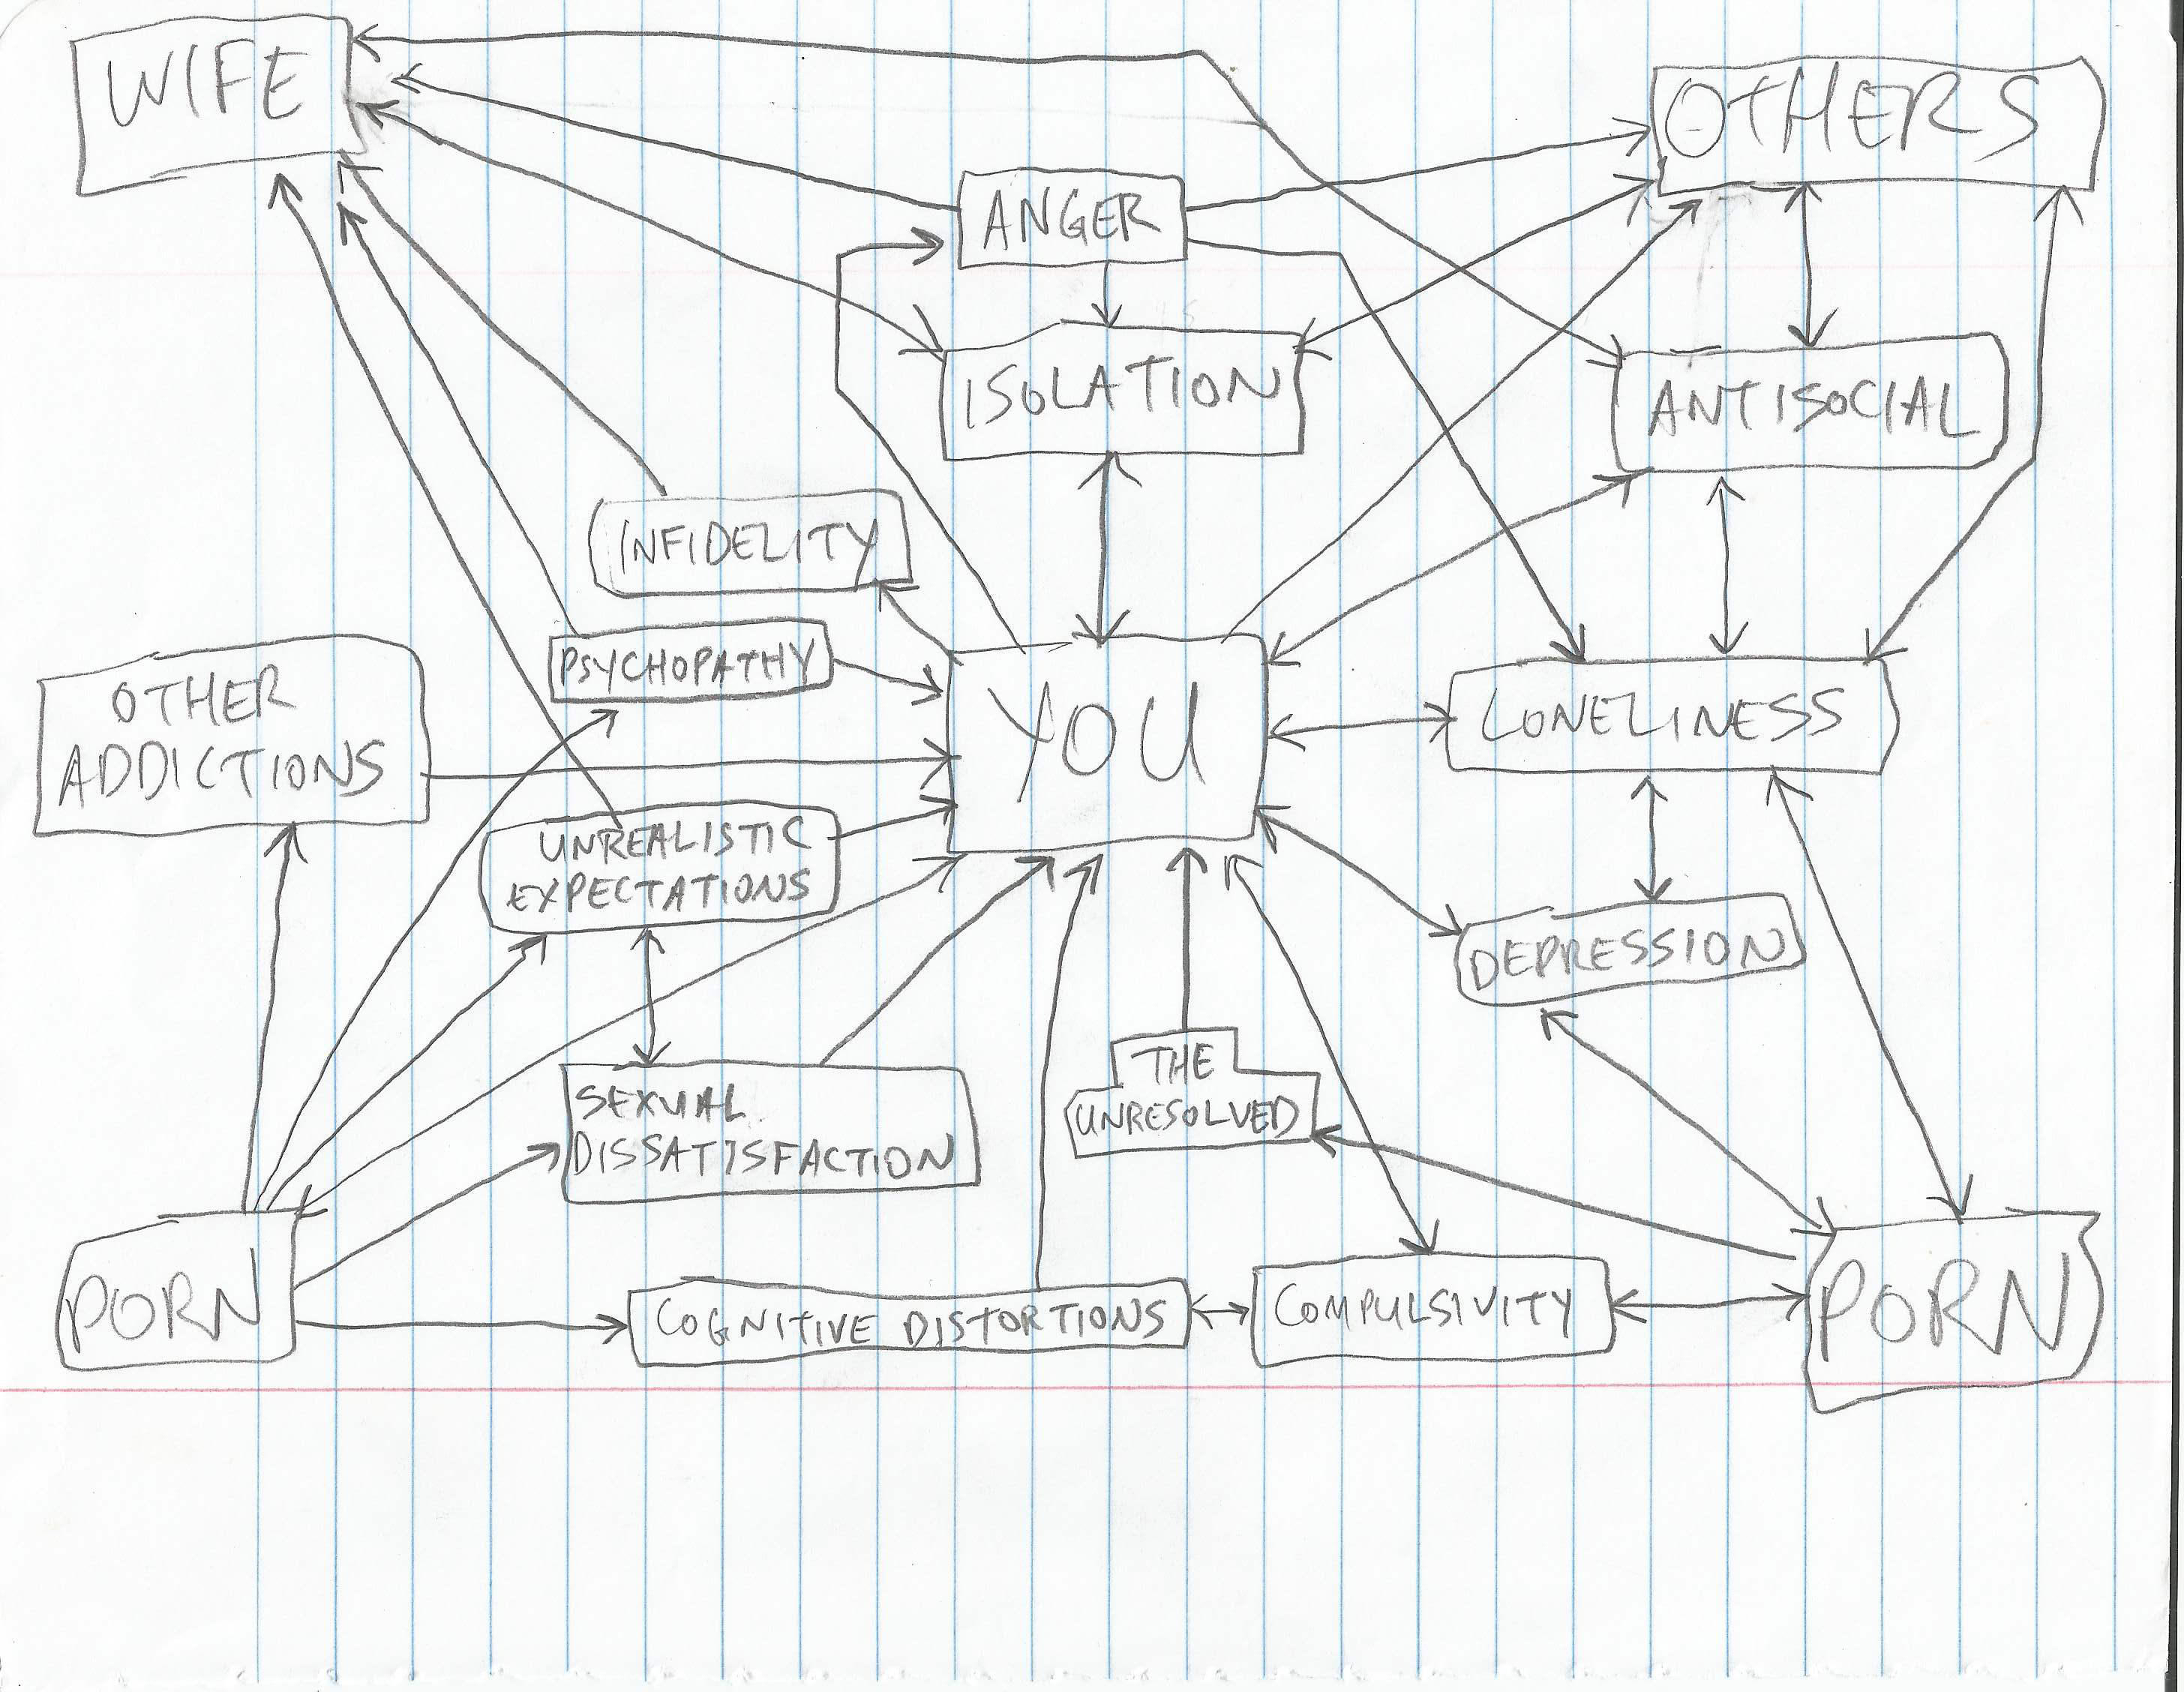 WIFE
OTHERS
ANGER
ISOLATION
ANTISOCIAL
INFIDELITY
PSYCHOPATHY
OTHER
ADDICTIONS
YOU
LONELINESS
UNREALISTIC
EXPECTATIONS
DEPRESSION
THE
UNRESOLVED
SEXUAL
DISSATISFACTION
PORN
COGNITIVE DISTORTIONS
COMPULSIVITY
PORN